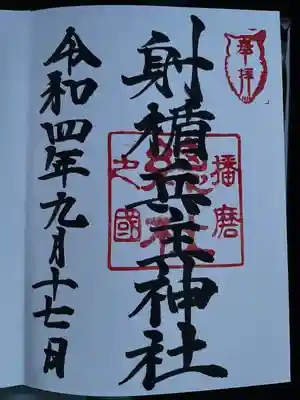 奉拝
射楯兵主神社
播磨
之國
令和四年九月十七日